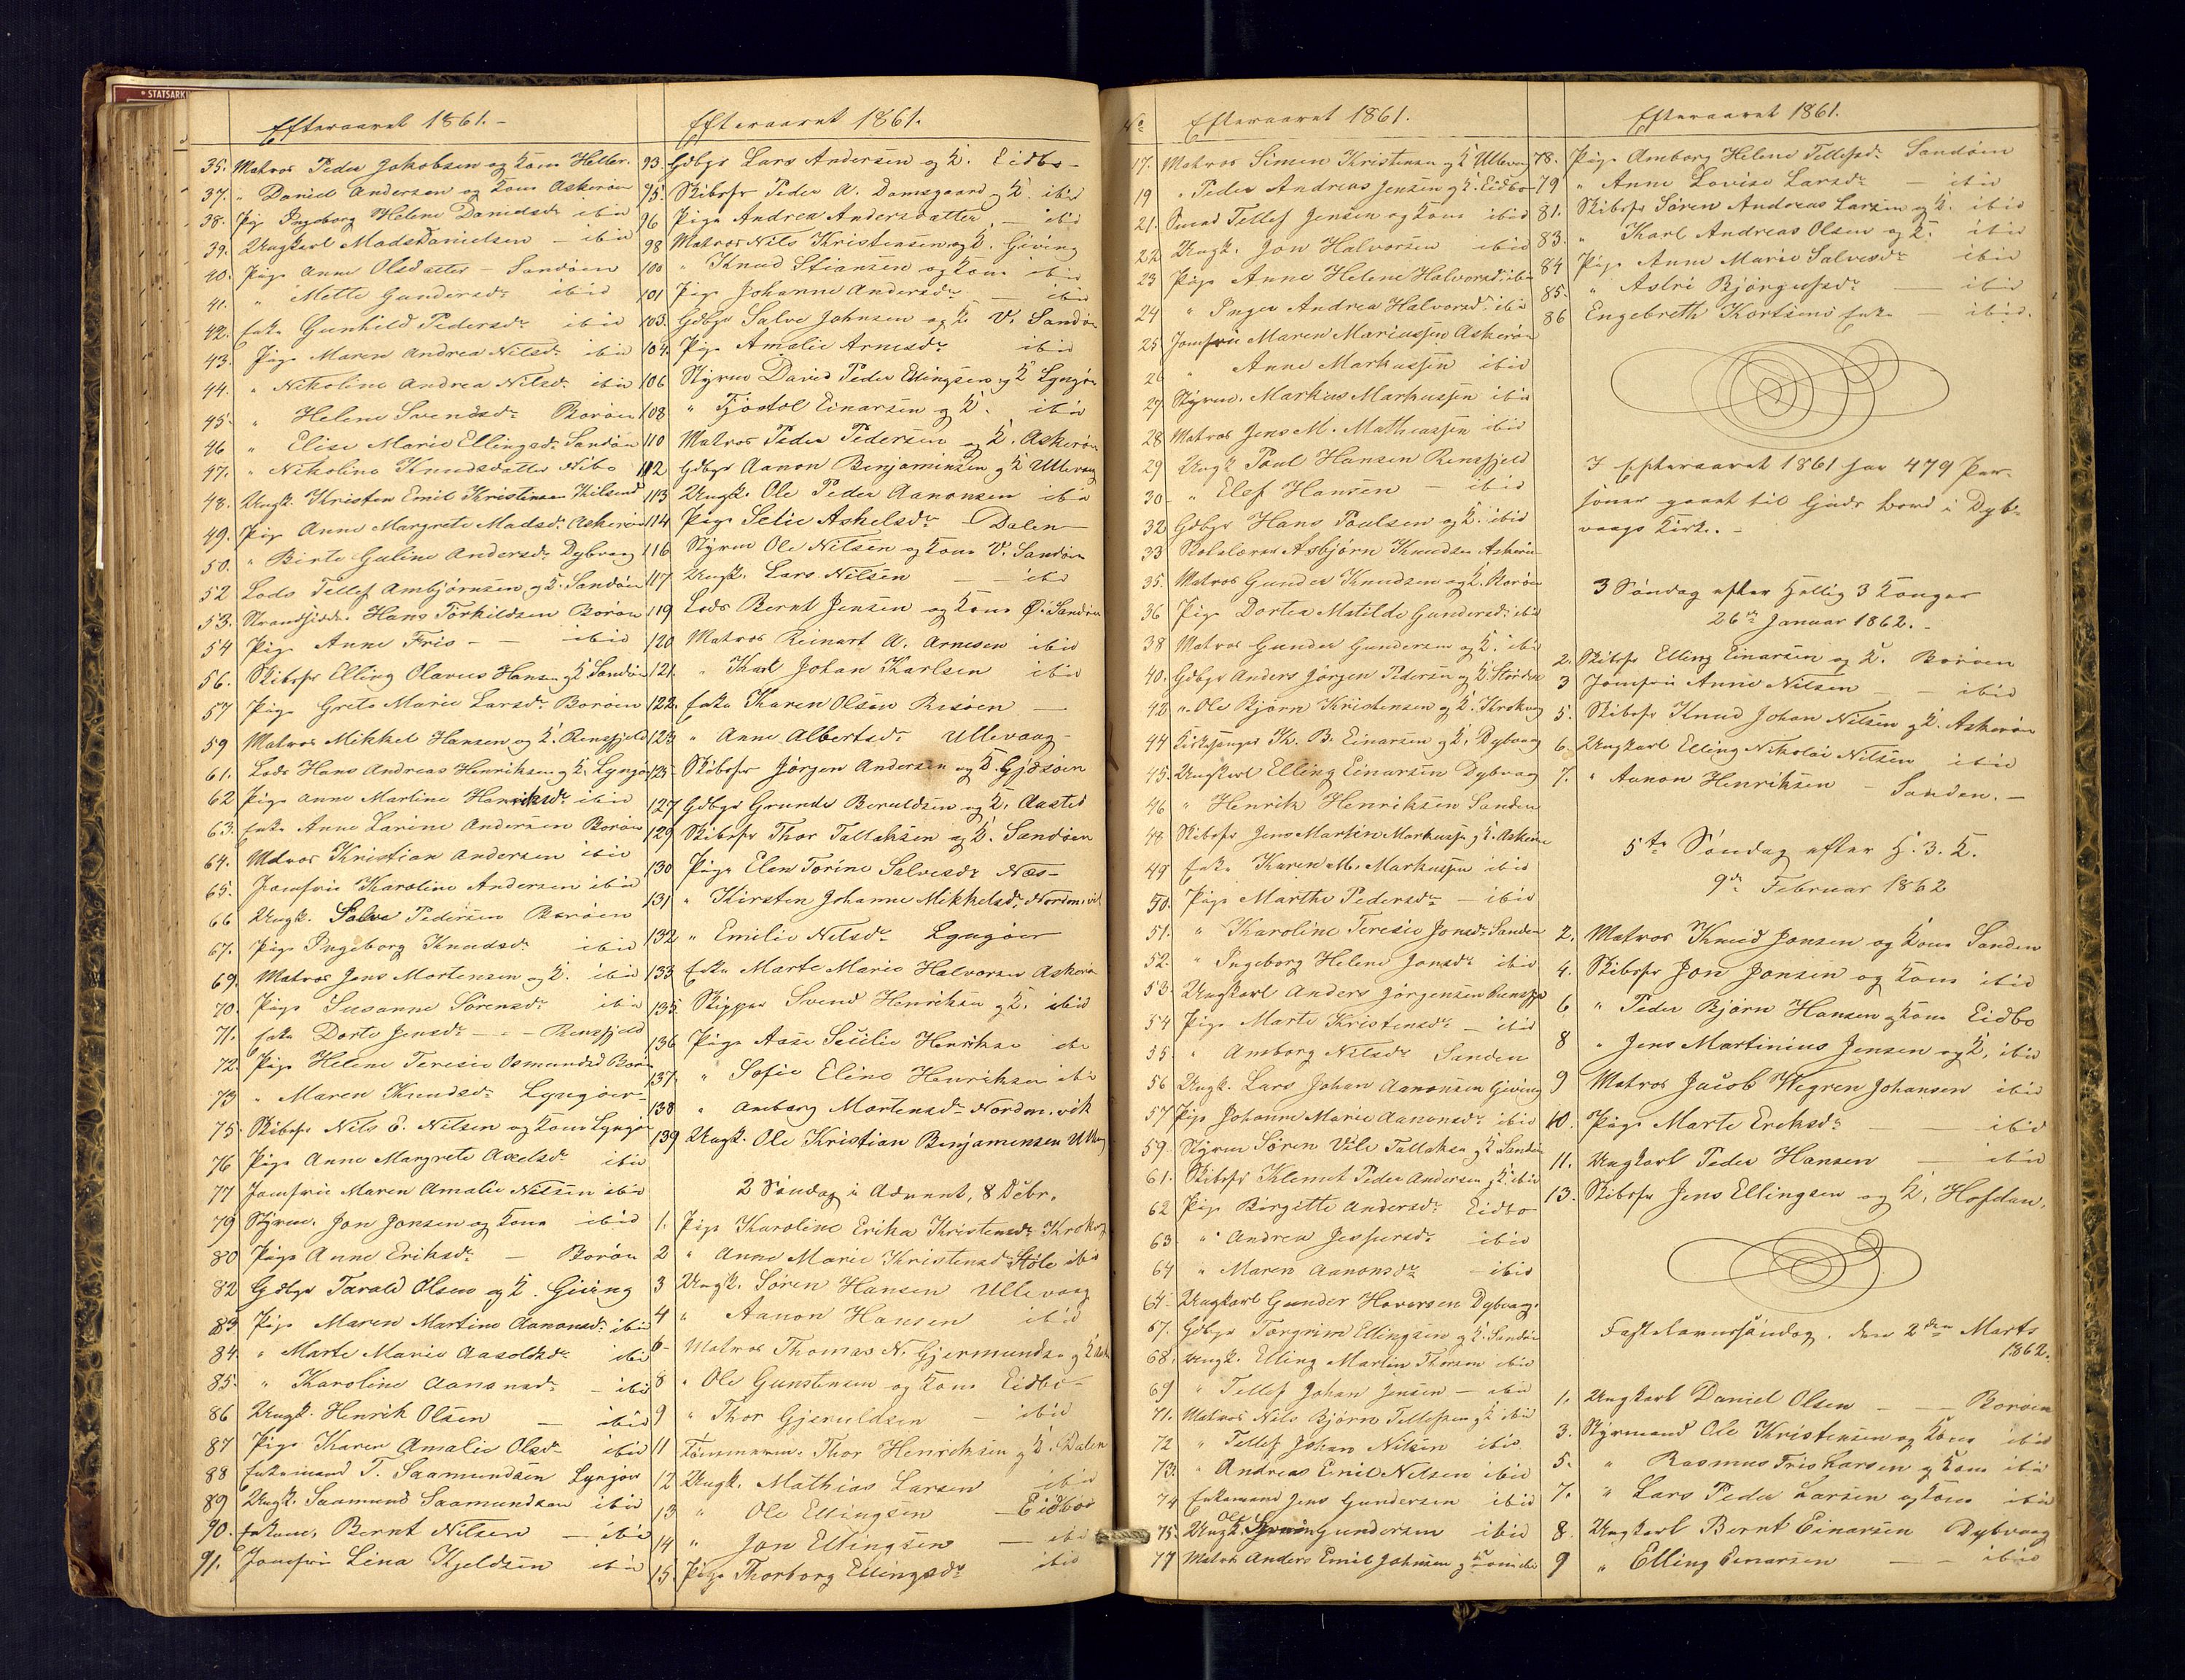 * STATSARKI
Efteraaret 1861. -
35. Matros Peder Jakobsen og Kone Heller.
37. " Daniel Andersen og Kone Askerøen
38. Pig Ingeborg Helene Danielsdr ibid
39. Ungkarl Mads Danielsen - ibid
40. Pige Anne Olsdatter - Sandøen
41. " Mette Gundersdr ibid
42. Enke Gunhild Pedersdr ibid
43. Pige Maren Andrea Nilsdr ibid
44. " Nikoline Andrea Nilsdr ibid
45. " Helene Svendsdr Borøen
46 " Elise Marie Ellingsdr Sandøen
47. " Nikoline Knudsdatter Nibo
48. Ungk. Kristen Emil Kristensen Kilsund
49. Pig Anne Margrete Madsdr Askerøen
50. " Birte Guline Andersdr Dybvaag
52 Lods Tellef Ambjørnsen og K. Sandøen
53. Strandsidder Hans Torkildsen Borøen
54 Pige Anne Friis - - ibid
56. Skibsfr Elling Olavus Hansen og K Sandøen
57 Pige Grete Marie Larsdr Borøen
59 Matros Mikkel Hansen og K. Rensfjeld
61. Lods Hans Andreas Henriksen og K. Lyngør
62 Pige Anne Martine Henriksdr ibid
63. Enke Anne Larine Andersen Borøen
64. Matros Kristian Andersen ibid
65. Jomfru Karoline Andersen ibid
66 Ungk. Salve Pedersen Borøen
67. Pige Ingeborg Knudsdr ibid
69. Matros Jens Mortensen og K. ibid
70. Pige Susanne Sørensdr ibid
71. Enke Dorte Jensdr - - - Rensfjeld
72. Pige Helene Teresie Osmundsd Borøen
73 " Maren Knudsdr Lyngøer -
75. Skibsfr Nils E. Nilsen og Kone Lyngør
76 Pige Anne Margrete Axelsdr ibid
77 Jomfru Maren Amalie Nilsen ibid
79 Styrm. Jon Jonsen og Kone ibid
80 Pige Anne Eriksdr - Borøen
82 Gdbgr Tarald Olsen og K. Giving
83 Pige Maren Martine Aanonsdr ibid
84 " Marte Marie Aasoldsdr ibid
85. " Karoline Aanonsdr - ibid
86 Ungk. Henrik Olsen - ibid
87 Pige Karen Amalie Olsdr ibid
88 Enkemand T. Saamundsen Lyngøer
89 Ungk. Saamund Saamundsen ibid
90. Enkem. Bernt Nilsen - ibid
91. Jomfru Lina Kjeldsen ibid
Efteraaret 1861.
93. Gdbgr Lars Andersen og K. Eidbo -
95. Skibsfr Peder A. Damsgaard og K. ibid
96 Pige Andrea Andersdatter - ibid
98 Matros Nils Kristensen og K. Giving
100 " Knud Stiansen og Kone ibid
101 Pige Johanne Andersdr - ibid
103. Gdbgr Salve Johnsen og K V. Sandøen
104. Pige Amalie Arnesdr ibid
106 Styrm David Peder Ellingsen og K Lyngør
108 " Tjostol Einarsen og K. ibid
110 Matros Peder Pedersen og K. Askerøen
112 Gdbgr Aanon Benjaminsen og K Ullevaag
113 Ungk. Ole Peder Aanonsen ibid
114 Pige Selie Askelsdr - Dalen
116 Styrm Ole Nilsen og Kone V. Sandøen
117 Ungk. Lars Nilsen - ibd
119 Lods Bernt Jensen og Kone Ø. Sandøen
120 Matros Reinart A. Arnesen ibid
121. " Karl Johan Karlsen ibid
122. Enke Karen Olsen Risøen -
123 " Anne Albertsdr Ullevaag -
125 Skibsfr Jørgen Andersen og K. Gjesøen
127 Gdbgr Grunde Beruldsen og K. Aasted
129 Skibsfr Thor Tallaksen og K. Sandøen
130 Pige Elen Torine Salvesdr Næs -
131 " Kirsten Johanne Mikkelsdr Nordm.vik
132 " Emilie Nilsdr Lyngøer
133 Enke Marte Marie Halvorsen Askerø
135 Skipper Svend Henriksen og K. ibid
136 Pige Aase Secilie Henriksen ibd
137. " Sofie Eline Henriksen ibd
138 " Amborg Mortensdr Nordm.vik
139 Ungk. Ole Kristian Benjaminsen Ullvg
2 Søndag i Advent, 8 Decbr.
1. Pige Karoline Erika Kristensdr Krokvg
2 " Anne Marie Kristensd Støle ibid
3 Ungk. Søren Hansen Ullevaag
4 " Aanon Hansen ibid
6 Matros Thomas N. Gjermundsen og K
8 " Ole Gunstensen og Kone Eidbo -
9 " Thor Gjeruldsen - ibid
11 Tømmerm. Thor Henriksen og K. Dalen
12 Ungk. Mathias Larsen ibid
13 " Ole Ellingsen - Eidboe
14 " Jon Ellingsen - ibid
15. Pige Thorborg Ellingsdr ibid
No Efteraaret 1861.
17. Matros Simen Kristensen og K Ullevaag
19 " Peder Andreas Jensen og K. Eidbo
21. Smed Tellef Jensen og Kone ibid
22 Ungk. Jon Halvorsen ibid
23 Pige Anne Helene Halvorsd. ibid
24 " Inger Andrea Halvorsd. ibid
25 Jomfru Maren Mariussen Askerøen
26 " Anne Markussen ibid
27 Styrm. Markus Markussen ibid
28 Matros Jens M. Mathiassen ibid
29 Ungk Poul Hansen Rensfjeld
30 " Elef Hansen - ibid
32 Gdbgr Hans Poulsen og K. ibid
33 Skolelærer Asbjørn Knudsen Askerø
35. Matros Gunder Knudsen og K. Borøen
36 Pige Dortea Matilde Gundersd. ibid
38 Matros Gunder Gundersen og K. ibid
40. Gdbgr Anders Jørgen Pedersen og K.
42 " Ole Bjørn Kristensen og K. Krokvg
44 Kirkesanger K. B. Einarsen og K. Dybvaag
45. Ungkarl Elling Einarsen Dybvag
46 " Henrik Henriksen Sanden
48 Skibsfr Jens Martin Markussen og K. Askerøen
49 Enke Karen M. Markussen ibid
50. Pige Marthe Pedersdr - ibid
51. " Karoline Teresie Jonsdr Sanden
52. " Ingeborg Helene Jonsdr ibid
53. Ungkarl Anders Jørgensen Rensfje
54 Pige Marte Kristensdr - ibid
55 " Amborg Nilsdr Sanden
56 Ungk. Lars Johan Aanonsen Giving
57 Pige Johanne Marie Aanonsdr ibid
59. Styrm Søren Vile Tallaksen og K Sanden
61. Skibsfr Klemet Peder Andersen og K. ibid
62 Pig Birgitte Andersdr Eidbo
63 " Andrea Jespersdr ibid
64 " Maren Aanonsdr - ibid
65 Ungkarl Gunder Haversen Dybvaag.
67. Gdbgr Torgrim Ellingsen og K. Sandøen
68. Ungk. Elling Martin Thorsen ibid
69 " Tellef Johan Jensen - ibid
71. Matros Nils Bjørn Tellefsen og K ibid
72 " Tellef Johan Nilsen ibid
73. " Andreas Emil Nilsen ibid
74 Enkemand Jens Gundersen ibid
75. Ungk. Ole Gundersen ibid
77 Matros Anders Emil Johnsen og Kone ibi
Efteraaret 1861.
78. Pige Amborg Helene Tellefsdr Sandøen
79 " Anne Lovise Larsdr - ibid
81. Skibsfr Søren Andreas Larsen og K. ibid
83. " Karl Andreas Olsen og K. ibid
84 Pige Anne Marie Salvesdr ibid
85. " Astri Bjørgufsdr - ibid
86 Engebreth Kortsens Enke - ibid.
I Efteraaret 1861 har 479 Per-
soner gaaet til Guds bord i Dyb-
vaags Kirke. -
3 Søndag efter Hellig 3 Konger
26de Januar 1862. -
2. Skibsfr Elling Einarsen og K. Borøen
3 Jomfru Anne Nilsen - - ibid
5. Skibsfr Knud Johan Nilsen og K. Askerøen
6. Ungkarl Elling Nikolai Nilsen ibid
7. " Aanon Henriksen - Sanden. -
5te Søndag efter H. 3. K.
9de Februar 1862
2. Matros Knud Jonsen og Kone Sanden
4. Skibsfr Jon Jonsen og Kone ibid
6 " Peder Bjørn Hansen og Kone Eidbo
8 " Jens Martinius Jensen og K. ibid
9 Matros Jacob Wegren Johansen ibid
10. Pige Marte Eriksdr - - ibid
11. Ungkarl Peder Hansen - ibid
13. Skibsfr Jens Ellingsen og K. Hofdan.
Fastelavnssøndag, den 2den Marts
1862.
1. Ungkarl Daniel Olsen - - Borøen
3. Styrmand Ole Kristensen og Kone ibid
5. " Rasmus Friis Larsen og Kone ibid
7. " Lars Peder Larsen og Kone ibid
8. Ungkarl Bernt Einarsen Dybvaag
9 " Elling Einarsen - - ibid